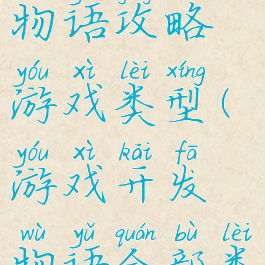 物语攻略
yóu xì lèi xíng
游戏类型(
yóu xì kāi fā
游戏开发
wù yǔ quán bù lèi
物语全部类